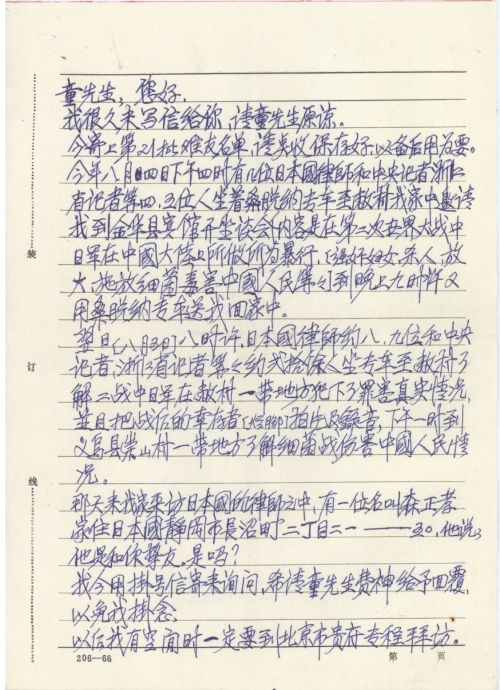 童先生，您好，
我很久未写信给你，请童先生原谅。
今寄上第21批难友名单，请点收保存好，以备后用为要。
今年八月四日下午四时有几位日本國律师和中央记者浙江
省记者等四、五位人坐着桑脱纳专车至敝村我家中邀请
我到金华县宾馆开坐谈会，内容是在第二次世界大战中
日军在中國大陆上所做所为暴行，[强奸妇女、杀人、放
火、施放细菌毒害中國人民等々]到晚上九时许又
用桑脱纳专车送我回家中。
翌日(八月5日)八时许，日本國律师约八、九位和中央
记者，浙江省记者等々约弍拾馀人坐专车至敝村了
解二战中日军在敝村一带地方犯下了罪害真实情况，
並且把战后的幸存者[烂脚]拍片及錄音，下午一时到
义乌县崇山村一带地方了解细菌战伤害中國人民情
况。
那天来我家采访日本國的律师之中，有一位名叫森正孝
家住日本國靜岡市長沼町二丁目二一——五〇，他说：
他是和你尊友。是吗？
我今用掛号信寄来询问，希请童先生费神给予回覆，
以免我掛念。
以后我有空闲时一定要到北京市贵府专程拜访。
装
订
线
206—66
第 页